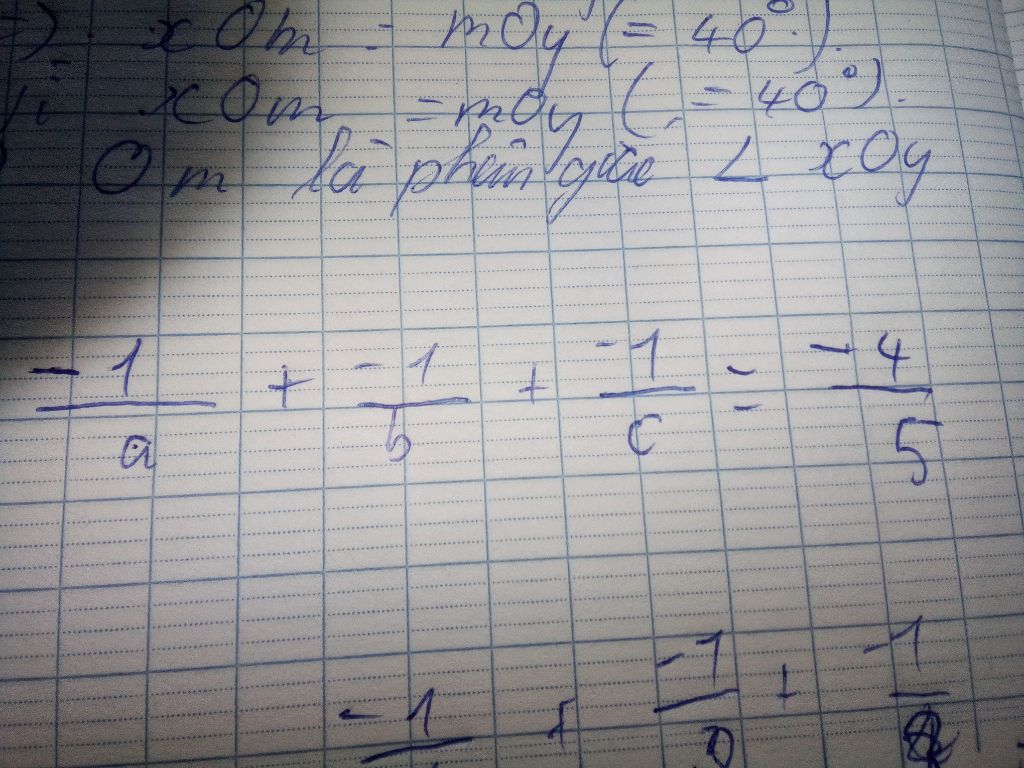 =) xOm = mOy (= 40°).
xOm = mOy (= 40°).
Om là phân giác ∠ xOy
-1/a + -1/b + -1/c = -4/5
-1 + -1 + -1